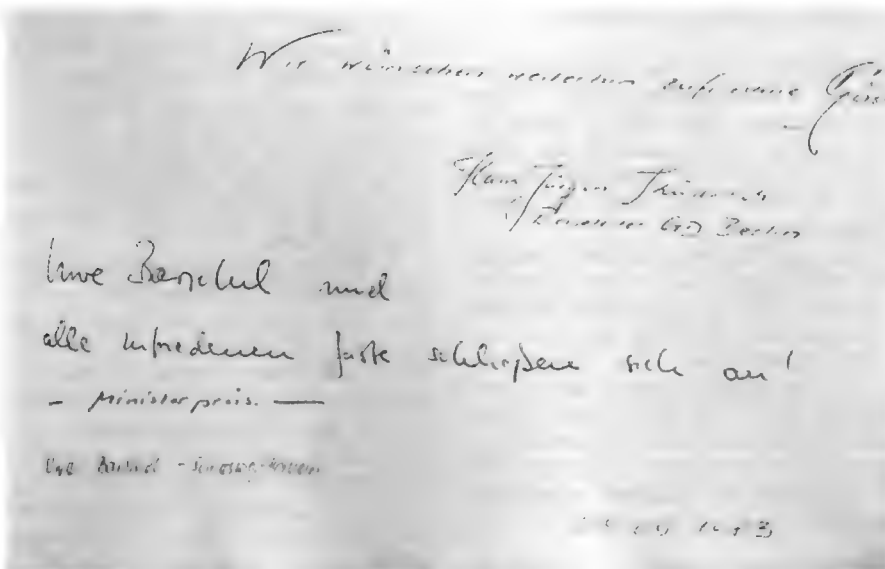 Wir wünschen weiterhin zufriedene Gäs
Hans Jürgen
Berlin
Uwe Barschel und
alle zufriedenen Gäste schließen sich an!
- Ministerpräs. -
Uwe Barschel - Schleswig-Holstein